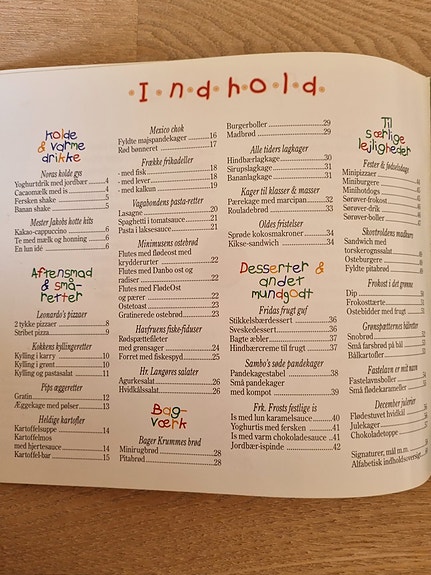 Indhold
Kolde
& varme
drikke
Noras kolde gys
Yoghurtdrik med jordbær 4
Cacaomælk med is 4
Fersken shake 5
Banan shake 5
Mester Jakobs hotte kits
Kakao-cappuccino 6
Te med mælk og honning 6
En lun idé 6
Aftensmad
& små-
retter
Leonardo's pizzaer
2 tykke pizzaer 8
Stribet pizza 9
Kokkens kyllingeretter
Kylling i karry 10
Kylling i grønt 10
Kylling og pastasalat 11
Pips æggeretter
Gratin 12
Æggekage med pølser 13
Heldige kartofler
Kartoffelsuppe 14
Kartoffelmos
med hjertesauce 14
Kartoffel-bar 15
Mexico chok
Fyldte majspandekager 16
Rød bønneret 17
Frække frikadeller
- med fisk 18
- med lever 18
- med kalkun 19
Vagabondens pasta-retter
Lasagne 20
Spaghetti i tomatsauce 21
Pasta i laksesauce 21
Minimusens ostebrød
Flutes med flødeost med
krydderurter 22
Flutes med Danbo ost og
radiser 22
Flutes med FlødeOst
og pærer 22
Ostetoast 23
Gratinerede ostebrød 23
Havfruens fiske-fiduser
Rødspættefileter
med grøntsager 24
Forret med fiskespyd 25
Hr. Langøres salater
Agurkesalat 26
Hvidkålssalat 26
Bag-
værk
Bager Krummes brød
Minirugbrød 28
Pitabrød 28
Burgerboller 29
Madbrød 29
Alle tiders lagkager
Hindbærlagkage 30
Sirupslagkage 31
Bananlagkage 31
Kager til klasser & masser
Pærekage med marcipan 32
Rouladebrød 33
Oldes fristelser
Sprøde kokosmakroner 34
Kikse-sandwich 34
Desserter &
andet
mundgodt
Fridas frugt guf
Stikkelsbærdessert 36
Sveskedessert 36
Bagte æbler 37
Hindbærcreme til frugt 37
Sambo's søde pandekager
Pandekagestabel 38
Små pandekager
med kompot 39
Frk. Frosts festlige is
Is med lun karamelsauce 40
Yoghurtis med fersken 41
Is med varm chokoladesauce 41
Jordbær-ispinde 42
Til
særlige
lejligheder
Fester & fødselsdage
Minipizzaer
Miniburgere
Minihotdogs
Sørøver-frokost
Sørøver-drik
Sørøver-boller
Skovtroldens madkurv
Sandwich med
torskerogssalat
Osteburgere
Fyldte pitabrød
Frokost i det grønne
Dip
Frokosttærte
Ostebidder med frugt
Grønspætternes båltur
Snobrød
Små farsbrød på bål
Bålkartofler
Fastelavn er mit navn
Fastelavnsboller
Små flødekarameller
December julerier
Flødestuvet hvidkål
Julekager
Chokoladetoppe
Signaturer, mål m.m.
Alfabetisk indholdsoversigt